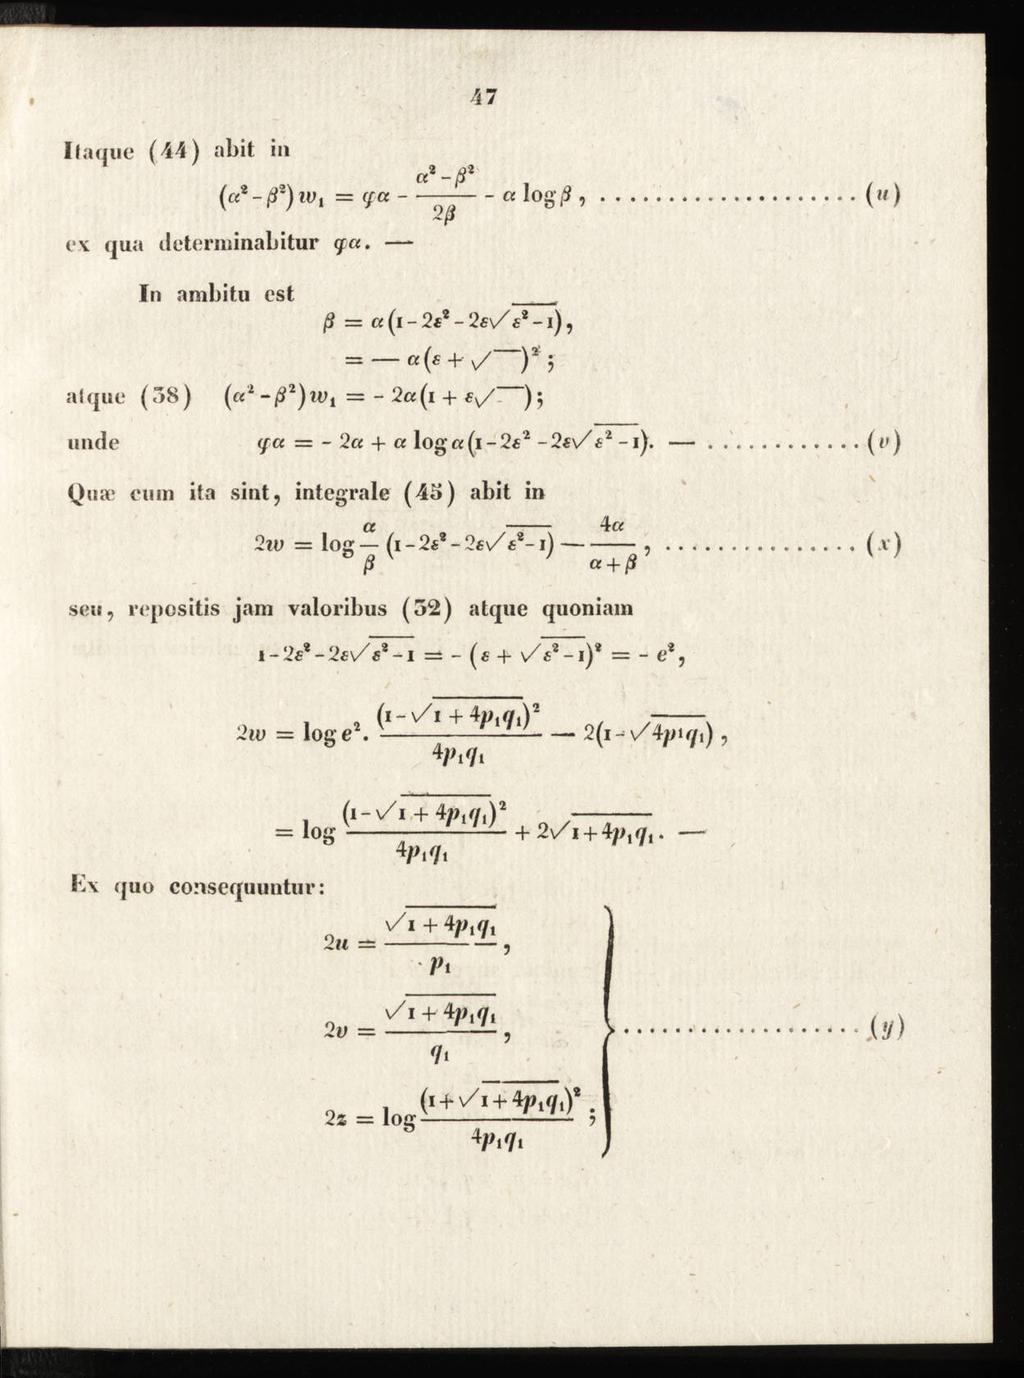 47
Itaque (44) abit in
(α² - β²) w₁ = φα - (α² - β²)/2β - α log β , .................... (u)
ex qua determinabitur φα. —
In ambitu est
β = α(1 - 2ε² - 2ε√ε² - 1),
= — α(ε + √‾‾)² ;
atque (38) (α² - β²)w₁ = - 2α(1 + ε√‾‾);
unde φα = - 2α + α log α(1 - 2ε² - 2ε√ε² - 1). — ............. (v)
Quæ cum ita sint, integrale (45) abit in
2w = log α/β (1 - 2ε² - 2ε√ε² - 1) — 4α/(α + β) , ............... (x)
seu, repositis jam valoribus (32) atque quoniam
1 - 2ε² - 2ε√ε² - 1 = - (ε + √ε² - 1)² = - e²,
2w = log e². (1 - √1 + 4p₁q₁)²/4p₁q₁ — 2(1 - √4p¹q₁) ,
= log (1 - √1 + 4p₁q₁)²/4p₁q₁ + 2√1 + 4p₁q₁. —
Ex quo consequuntur:
2u = √1 + 4p₁q₁/p₁ ,
2v = √1 + 4p₁q₁/q₁ , } .................. (y)
2z = log (1 + √1 + 4p₁q₁)²/4p₁q₁ ;